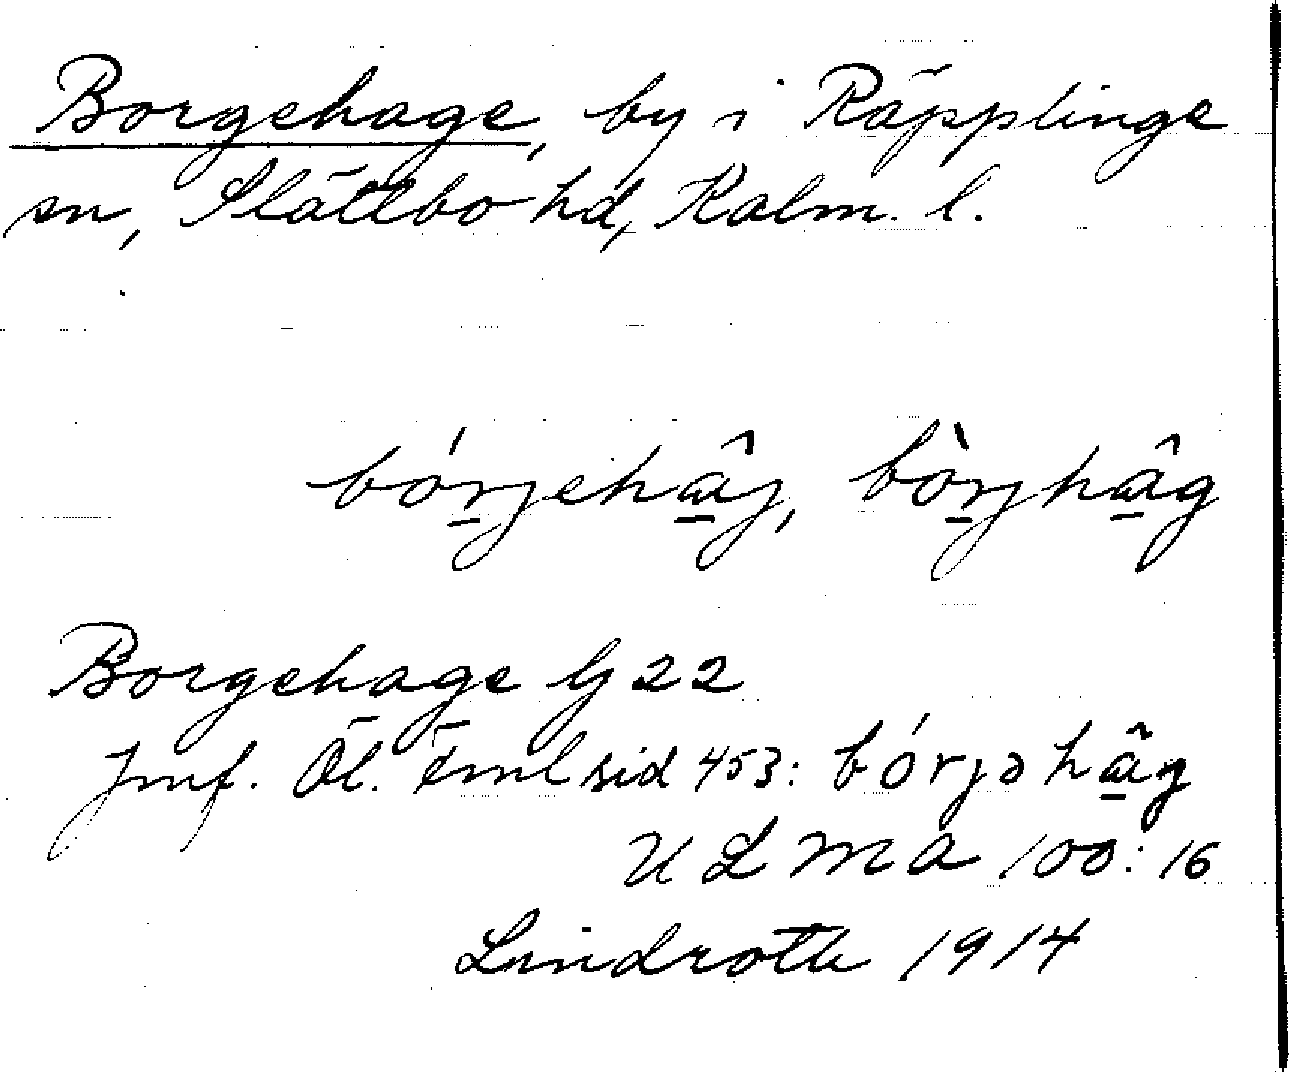 Borgehage, by i Räpplinge
sn, Slättbo hd, Kalm. l.
bórjehâ̱j, bòrjhâ̱g
Borgehage Gj 22
Jmf. Öl. Fml sid 453: bórjəhâ̱g
ULMA 100:16
Lindroth 1914